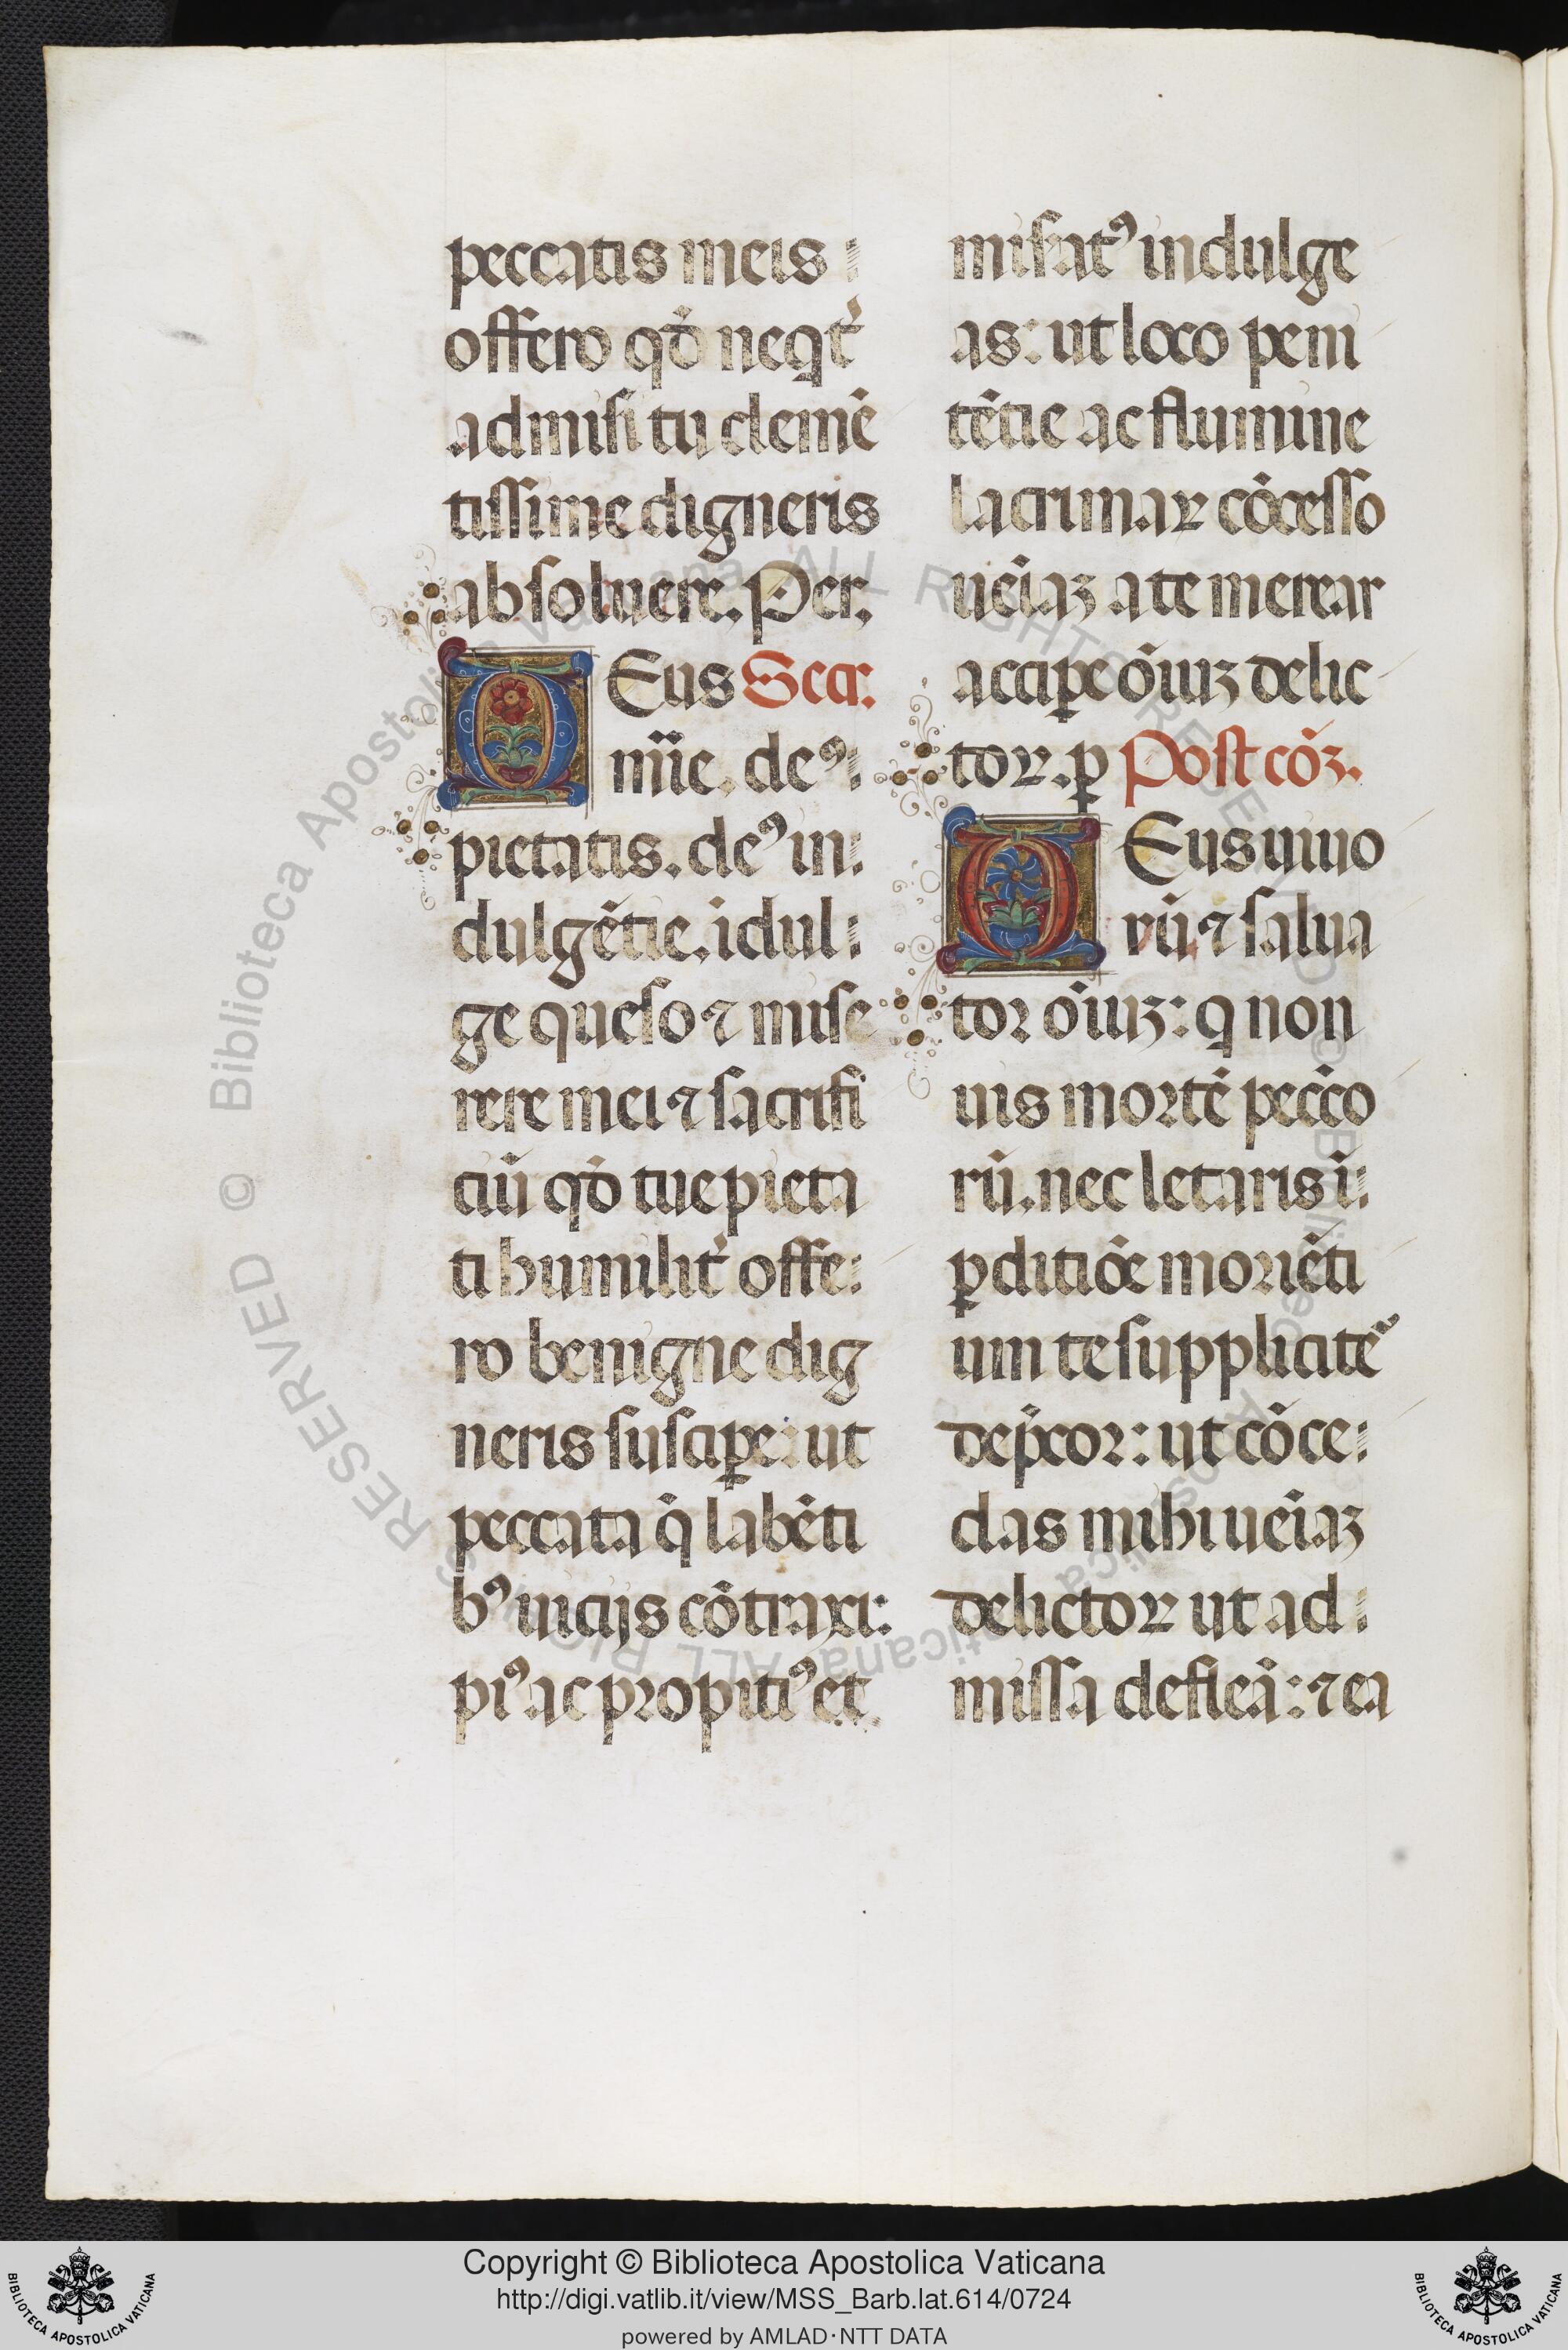 peccatis meis
offero qđ neqt᷑
admisi tu clemē
tissime digneris
absoluere. Per.
DEus Secr.
mīe. deꝰ
pietatis. deꝰ in
dulgētie. īdul
ge queso ⁊ mise
rere mei ⁊ sacrifi
ciū qđ tue pieta
ti humilit᷑ offe
ro benigne dig
neris suscipe: ut
peccata q̄ labēti
bꝰ uicijs cōtraxi:
piꝰ ac propitiꝰ et
misatꝰ indulge
as: ut loco peni
tētie ac flumine
lacrimaꝝ cōcesso
ueīaʒ a te merear
accipe oīuʒ delic
toꝝ. ꝑ Post cōʒ.
DEus uiuo
rū ⁊ salua
tor oīuʒ: q non
uis mortē peccō
rū. nec letaris ī
ꝑditiōe moriēti
um te suppliciteꝰ
dep̄cor: ut cōce
das mihi ueīaʒ
delictoꝝ ut ad
missa defleā: ⁊ ea
Copyright © Biblioteca Apostolica Vaticana
http://digi.vatlib.it/view/MSS_Barb.lat.614/0724
powered by AMLAD·NTT DATA
BIBLIOTECA APOSTOLICA VATICANA
BIBLIOTECA APOSTOLICA VATICANA